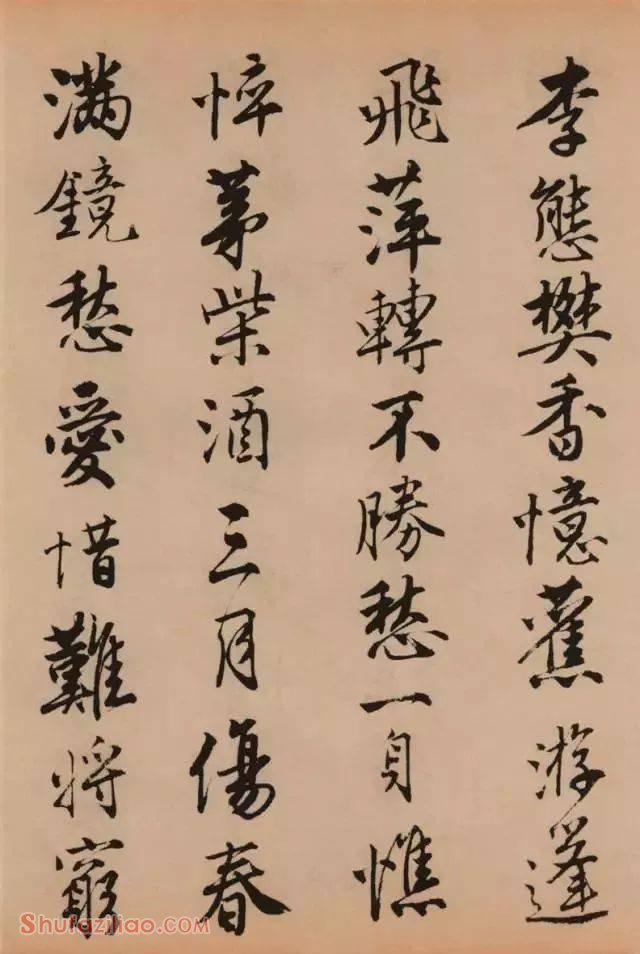 李態樊香憶舊游蓬
飛萍轉不勝愁一身憔
悴茅柴酒三月傷春
滿鏡愁愛惜難將窮
Shufaziliao.com